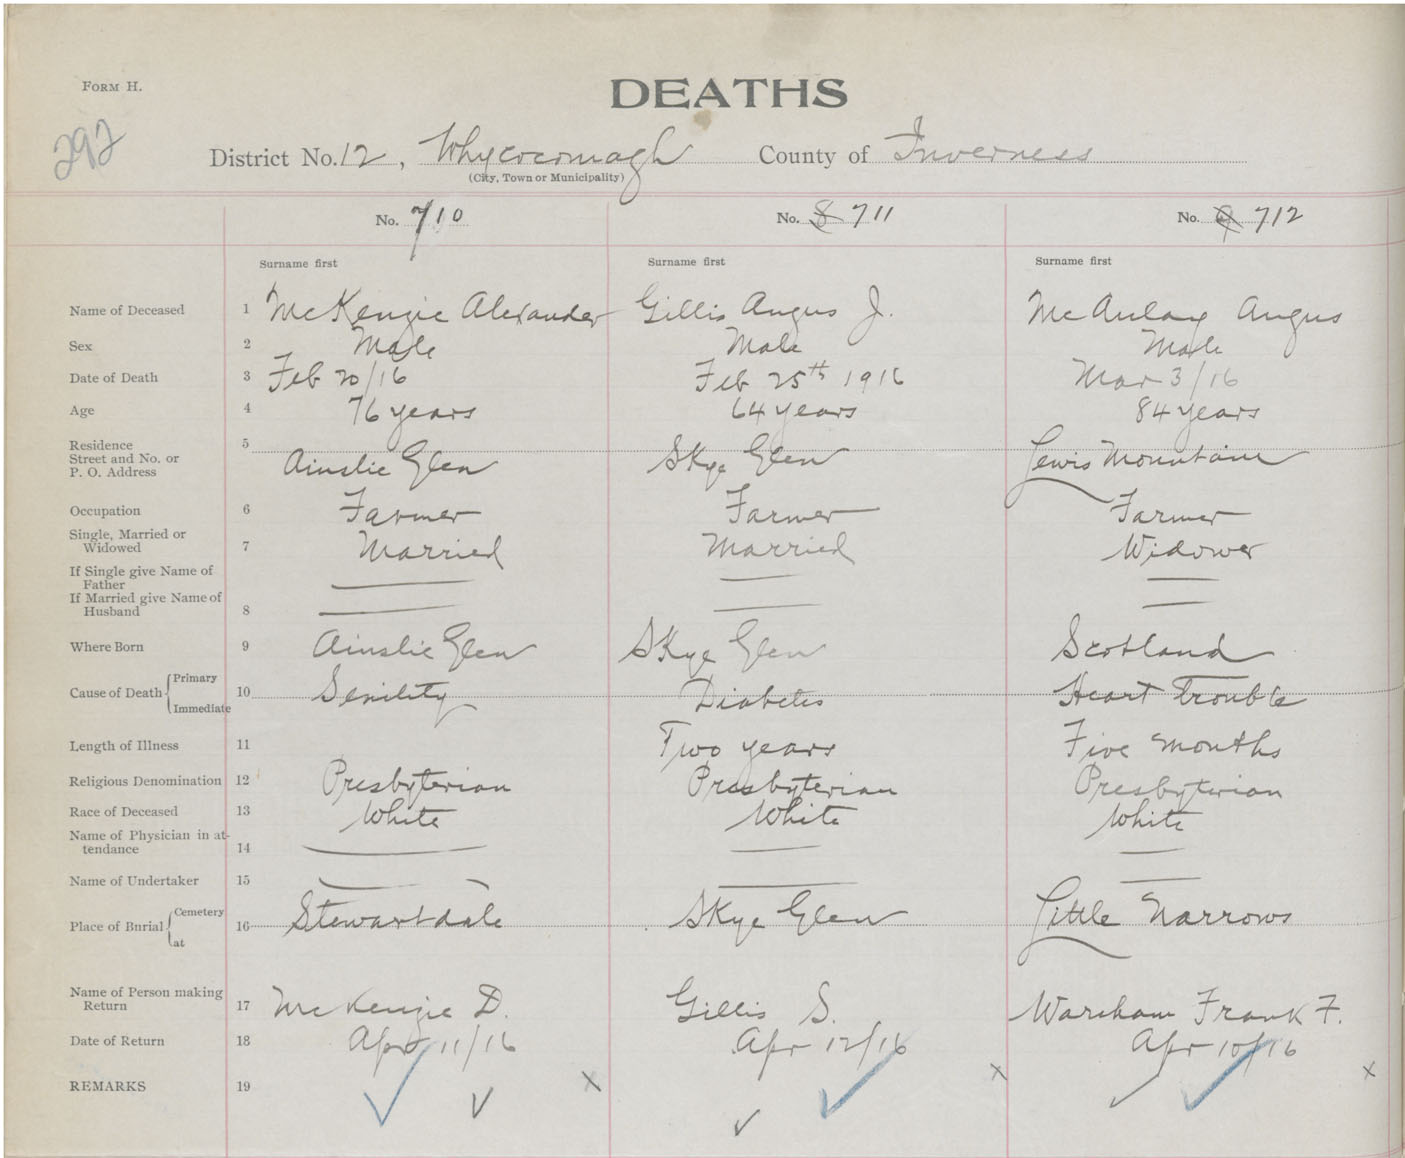 FORM H.
DEATHS
292
District No. 12, Whycocomagh County of Inverness
(City, Town or Municipality)
No. 710 No. 8 711 No. 9 712
Surname first Surname first Surname first
Name of Deceased 1 McKenzie Alexander Gillis Angus J. McAulay Angus
Sex 2 Male Male Male
Date of Death 3 Feb 20/16 Feb 25th 1916 Mar 3/16
Age 4 76 years 64 years 84 years
Residence 5
Street and No. or
P. O. Address Ainslie Glen Skye Glen Lewis Mountain
Occupation 6 Farmer Farmer Farmer
Single, Married or
Widowed 7 Married Married Widower
If Single give Name of
Father
If Married give Name of
Husband 8
Where Born 9 Ainslie Glen Skye Glen Scotland
Cause of Death { Primary
Immediate 10 Senility Diabetis Heart Trouble
Length of Illness 11 Two years Five months
Religious Denomination 12 Presbyterian Presbyterian Presbyterian
Race of Deceased 13 White White White
Name of Physician in at-
tendance 14
Name of Undertaker 15
Place of Burial { Cemetery
at 16 Stewartdale Skye Glen Little Narrows
Name of Person making
Return 17 McKenzie D. Gillis S. Wareham Frank F.
Date of Return 18 Apr 11/16 Apr 12/16 Apr 10/16
REMARKS 19 x x x